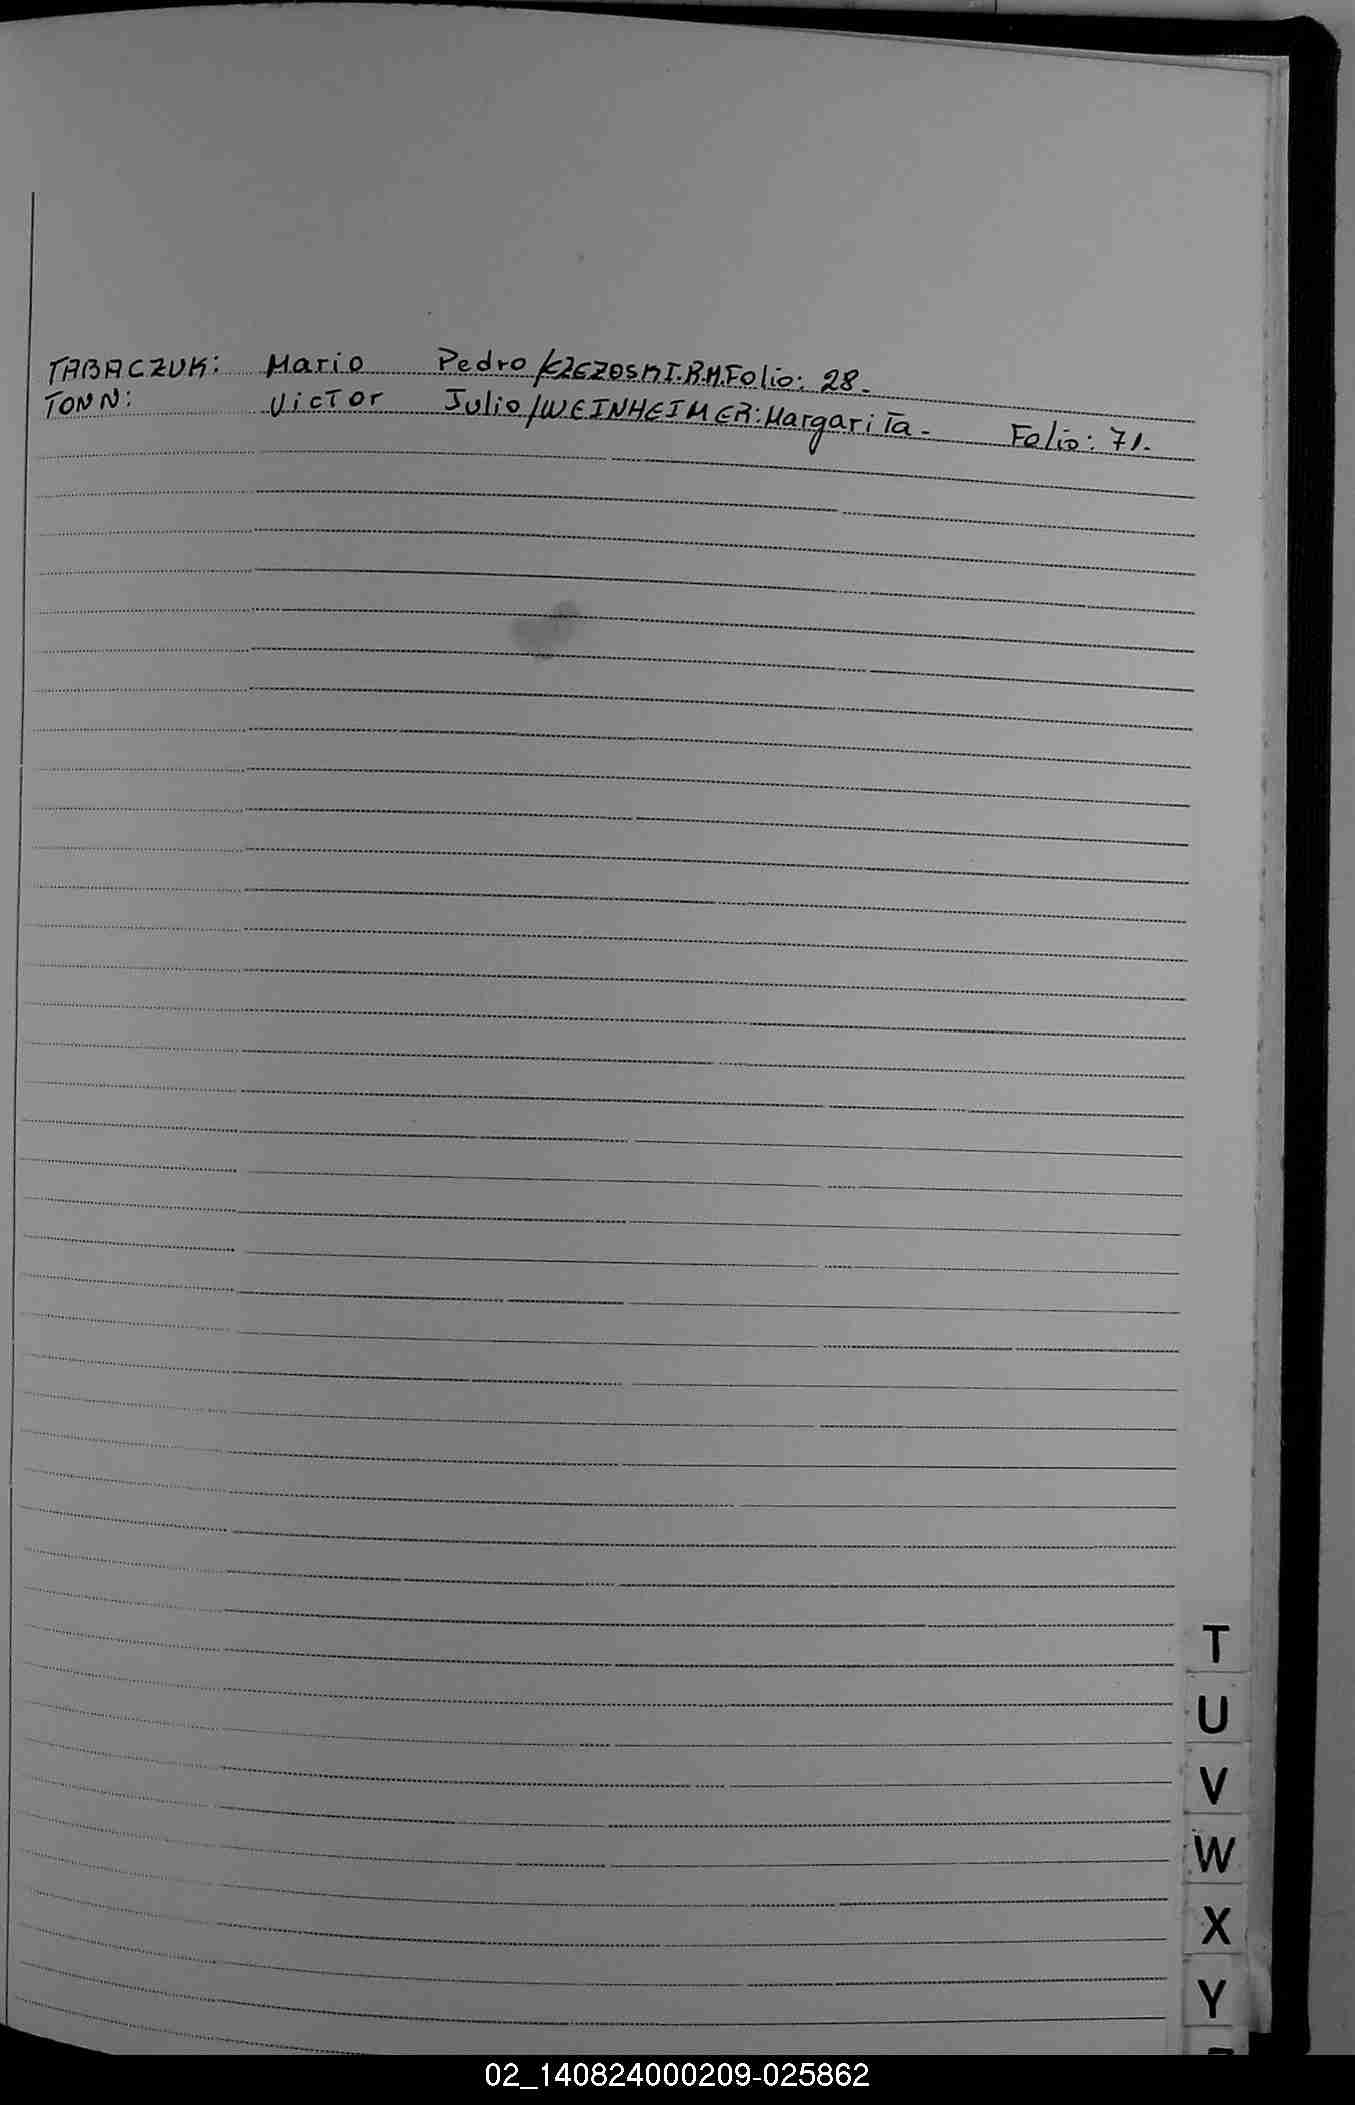 TABACZUK: Mario Pedro/KZEZOSKI.R.M.Folio: 28.
TONN: Victor Julio/WEINHEIMER:Margarita. Folio: 71.
T
U
V
W
X
Y
02_140824000209-025862